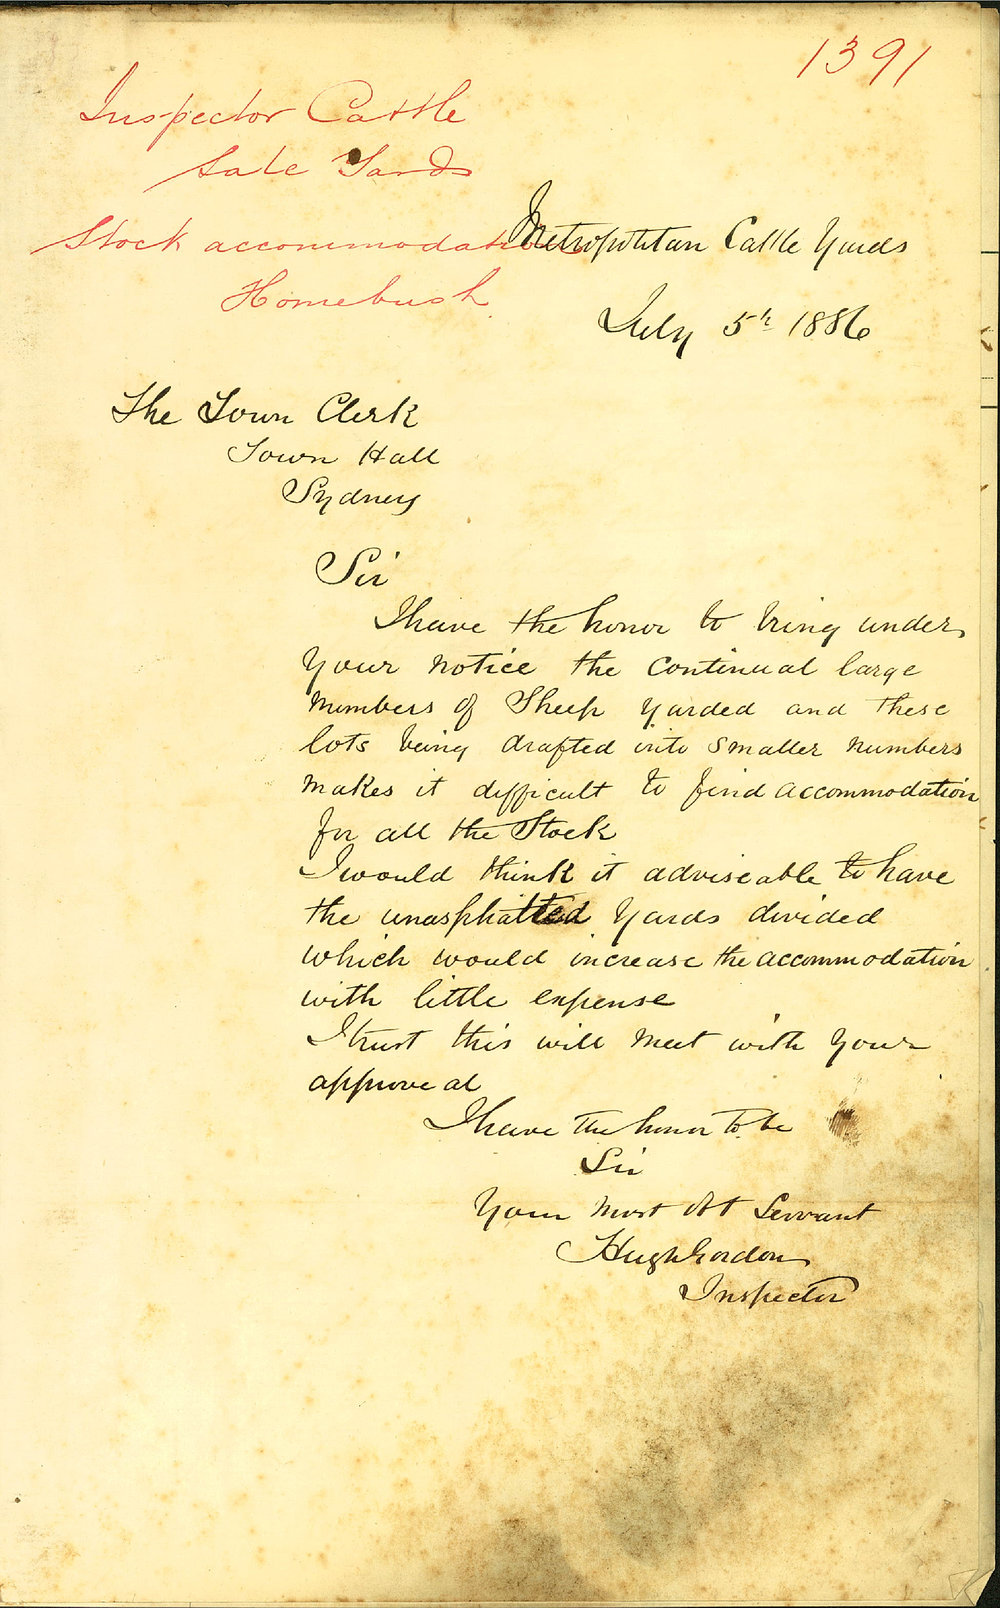 1391
Inspector Cattle
Sale Yards
Stock accommodation
Homebush.
Metropolitan Cattle Yards
July 5th 1886
The Town Clerk
Town Hall
Sydney
Sir
I have the honor to bring under
your notice the continual large
numbers of Sheep yarded and these
lots being drafted into smaller numbers
makes it difficult to find accommodation
for all the Stock
I would think it adviseable to have
the unasphaltted Yards divided
which would increase the accommodation
with little expense
I trust this will meet with your
approveal
I have the honor to be
Sir
Your most Obt Servant
Hugh Gordon
Inspector